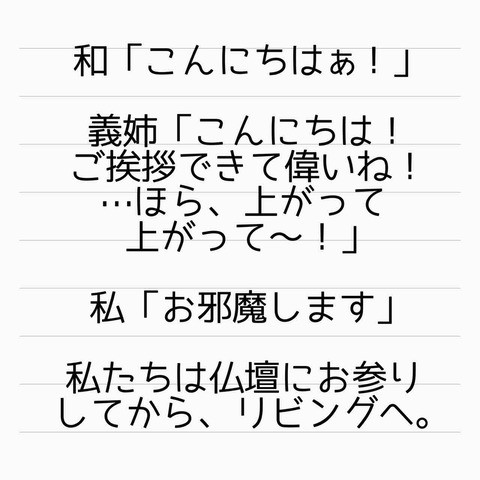 和「こんにちはぁ！」
義姉「こんにちは！
ご挨拶できて偉いね！
…ほら、上がって
上がって〜！」
私「お邪魔します」
私たちは仏壇にお参り
してから、リビングへ。